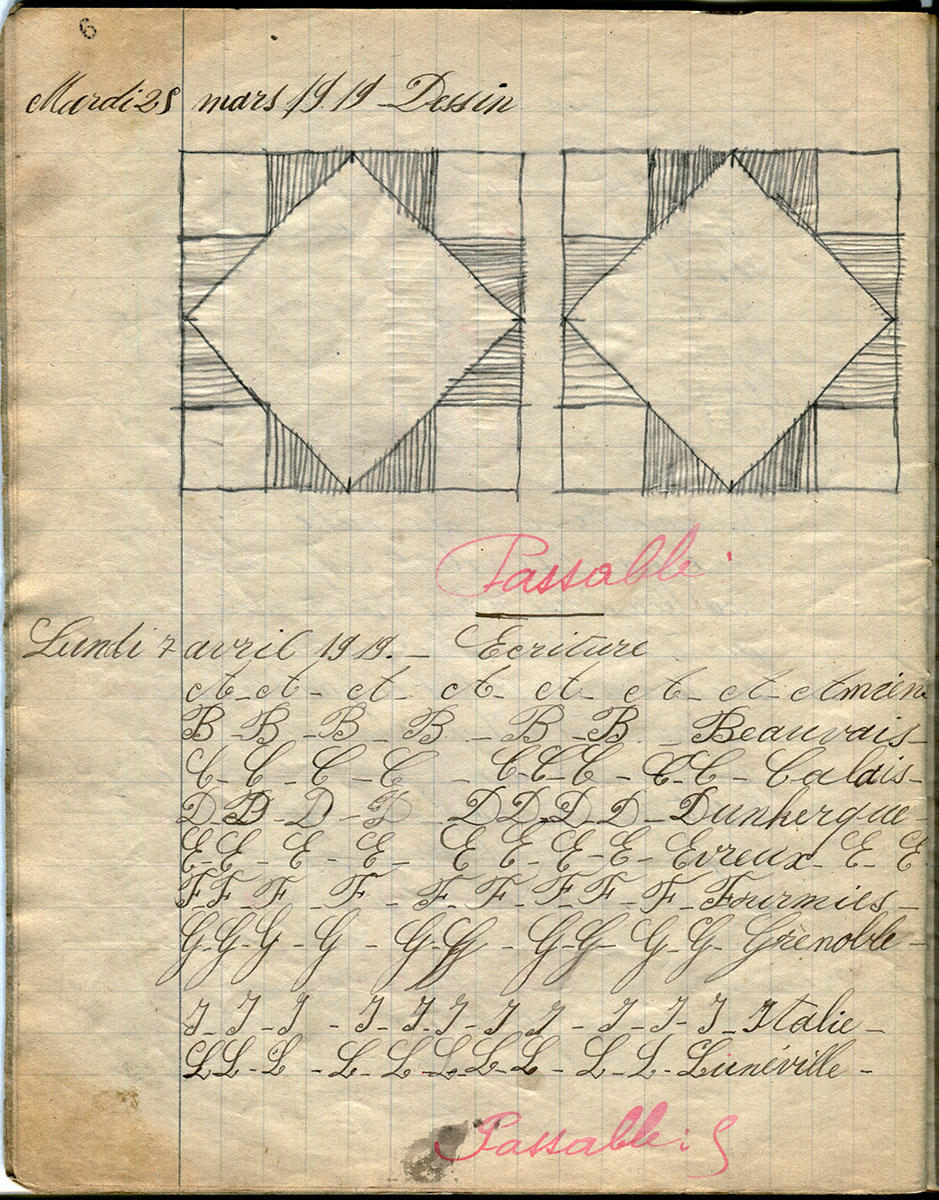 6
Mardi 25 mars 1919 Dessin
Passable
Lundi 7 avril 1919. - Ecriture
A - A - A - A - A - A - A - Amien
B - B - B - B - B - B - Beauvais -
C - C - C - C - C - C - C - C - C - Calais -
D D - D - D - D D - D - D - Dunkerque -
E - E - E - E - E E - E - E - Evreux - E - E
F F - F - F - F - F - F - F - F Fourmies -
G - G - G - G - G - G - G - G - G - G - Grenoble -
I - I - I - I - I - I - I - I - I - I - I - Italie -
L L - L - L - L - L - L - L - L - L - Lunéville -
Passable :